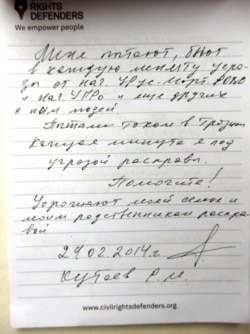 RIGHTS
DEFENDERS
We empower people
Меня пытают, бьют
в каждую минуту угро-
зы от нач. Урус-Март. РОВД
и нач УГРО и еще других
с ним людей
Пытали током в Грозном
каждая минута я под
угрозой расправы.
Помогите!
Угрожают моей семье и
моим родственникам распра-
вой
24.02.2014 г
Кутаев Р. М.
www.civilrightsdefenders.org